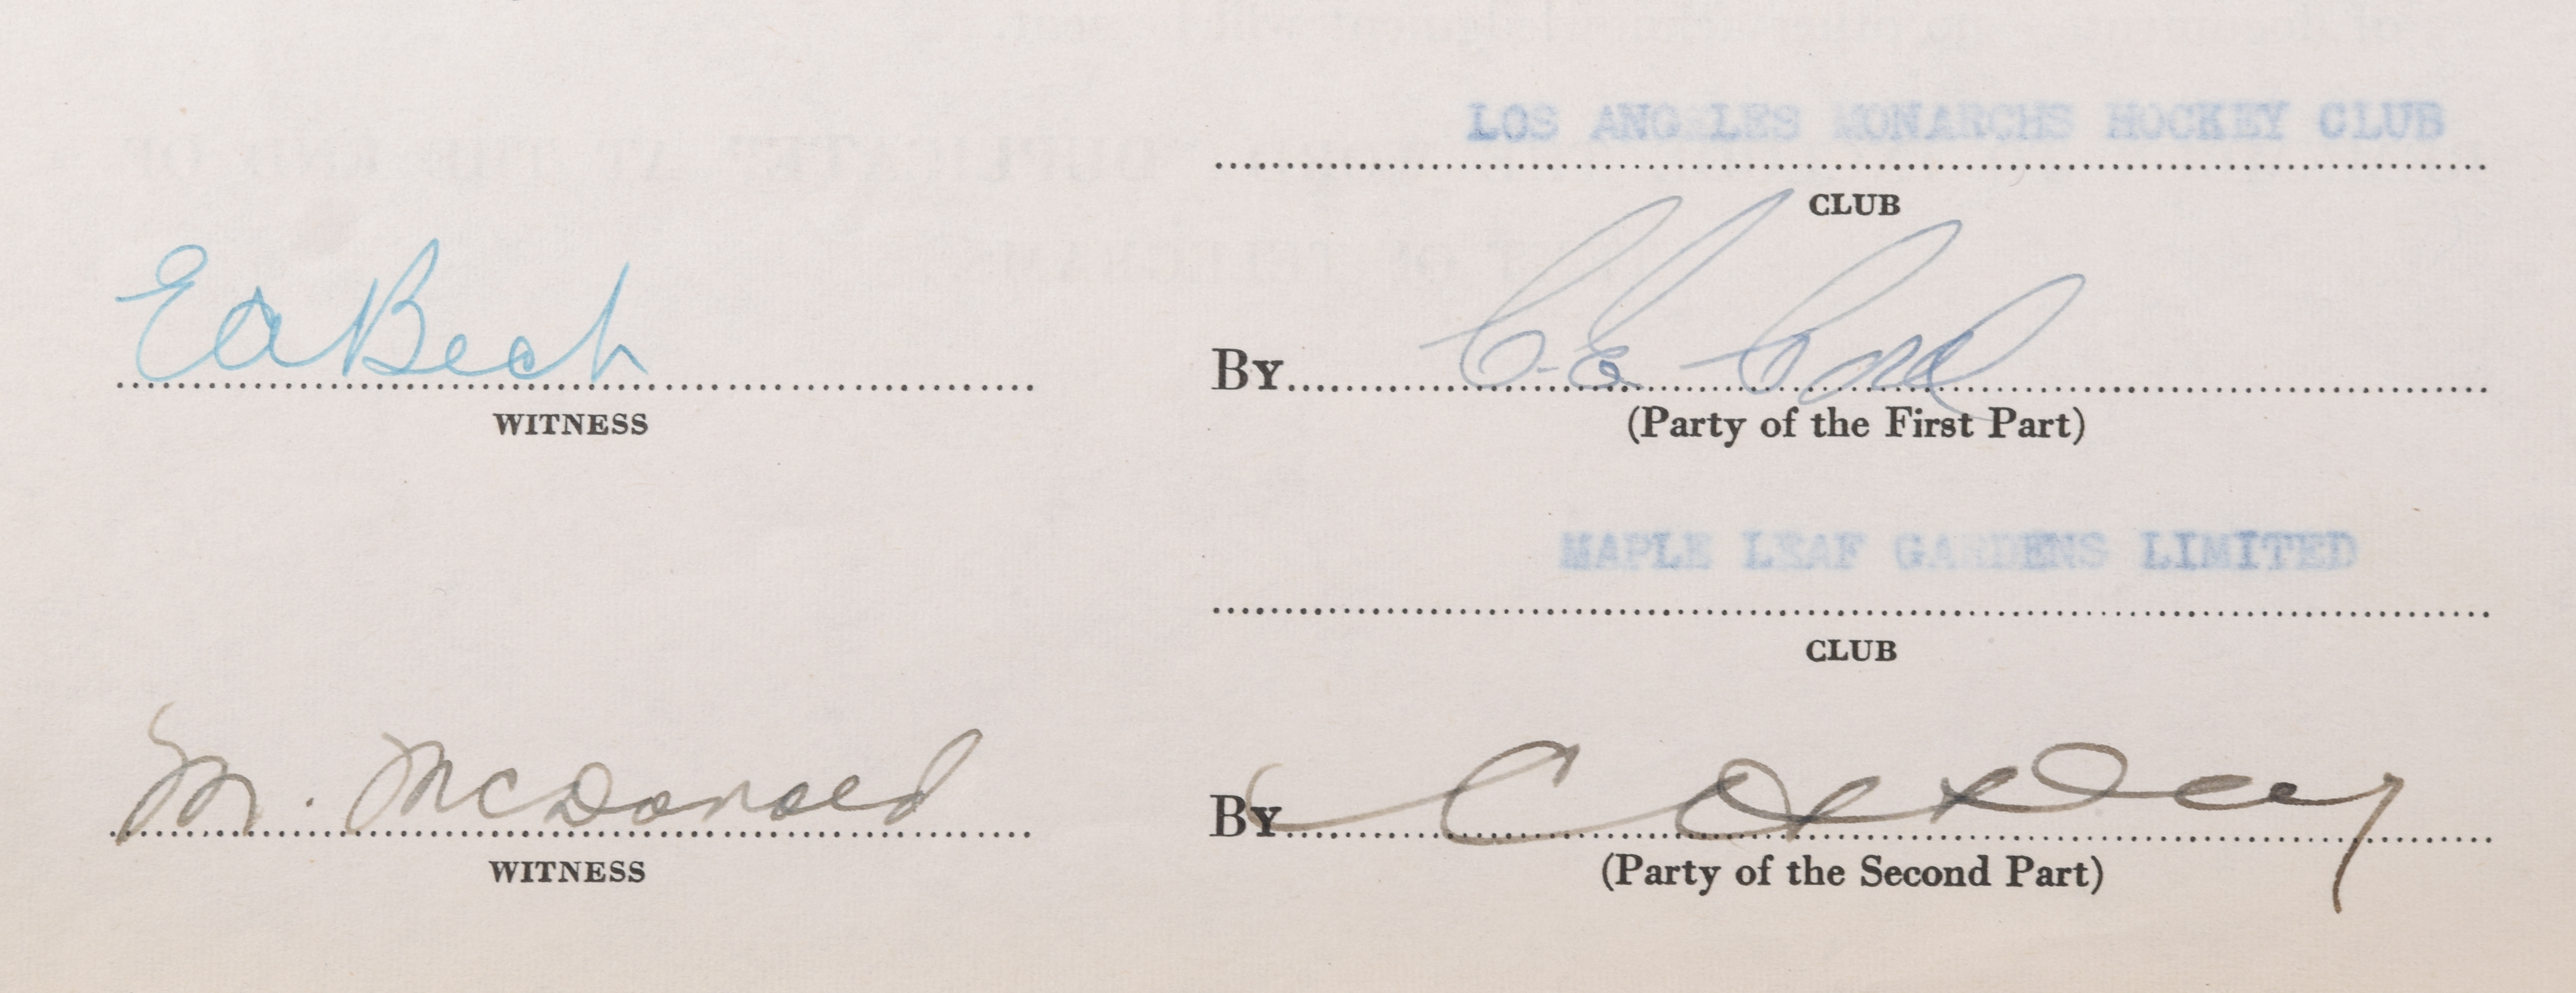 LOS ANGELES MONARCHS HOCKEY CLUB
CLUB
Ed Bech
By C. E.
WITNESS
(Party of the First Part)
MAPLE LEAF GARDENS LIMITED
CLUB
M. McDonald
By C
WITNESS
(Party of the Second Part)